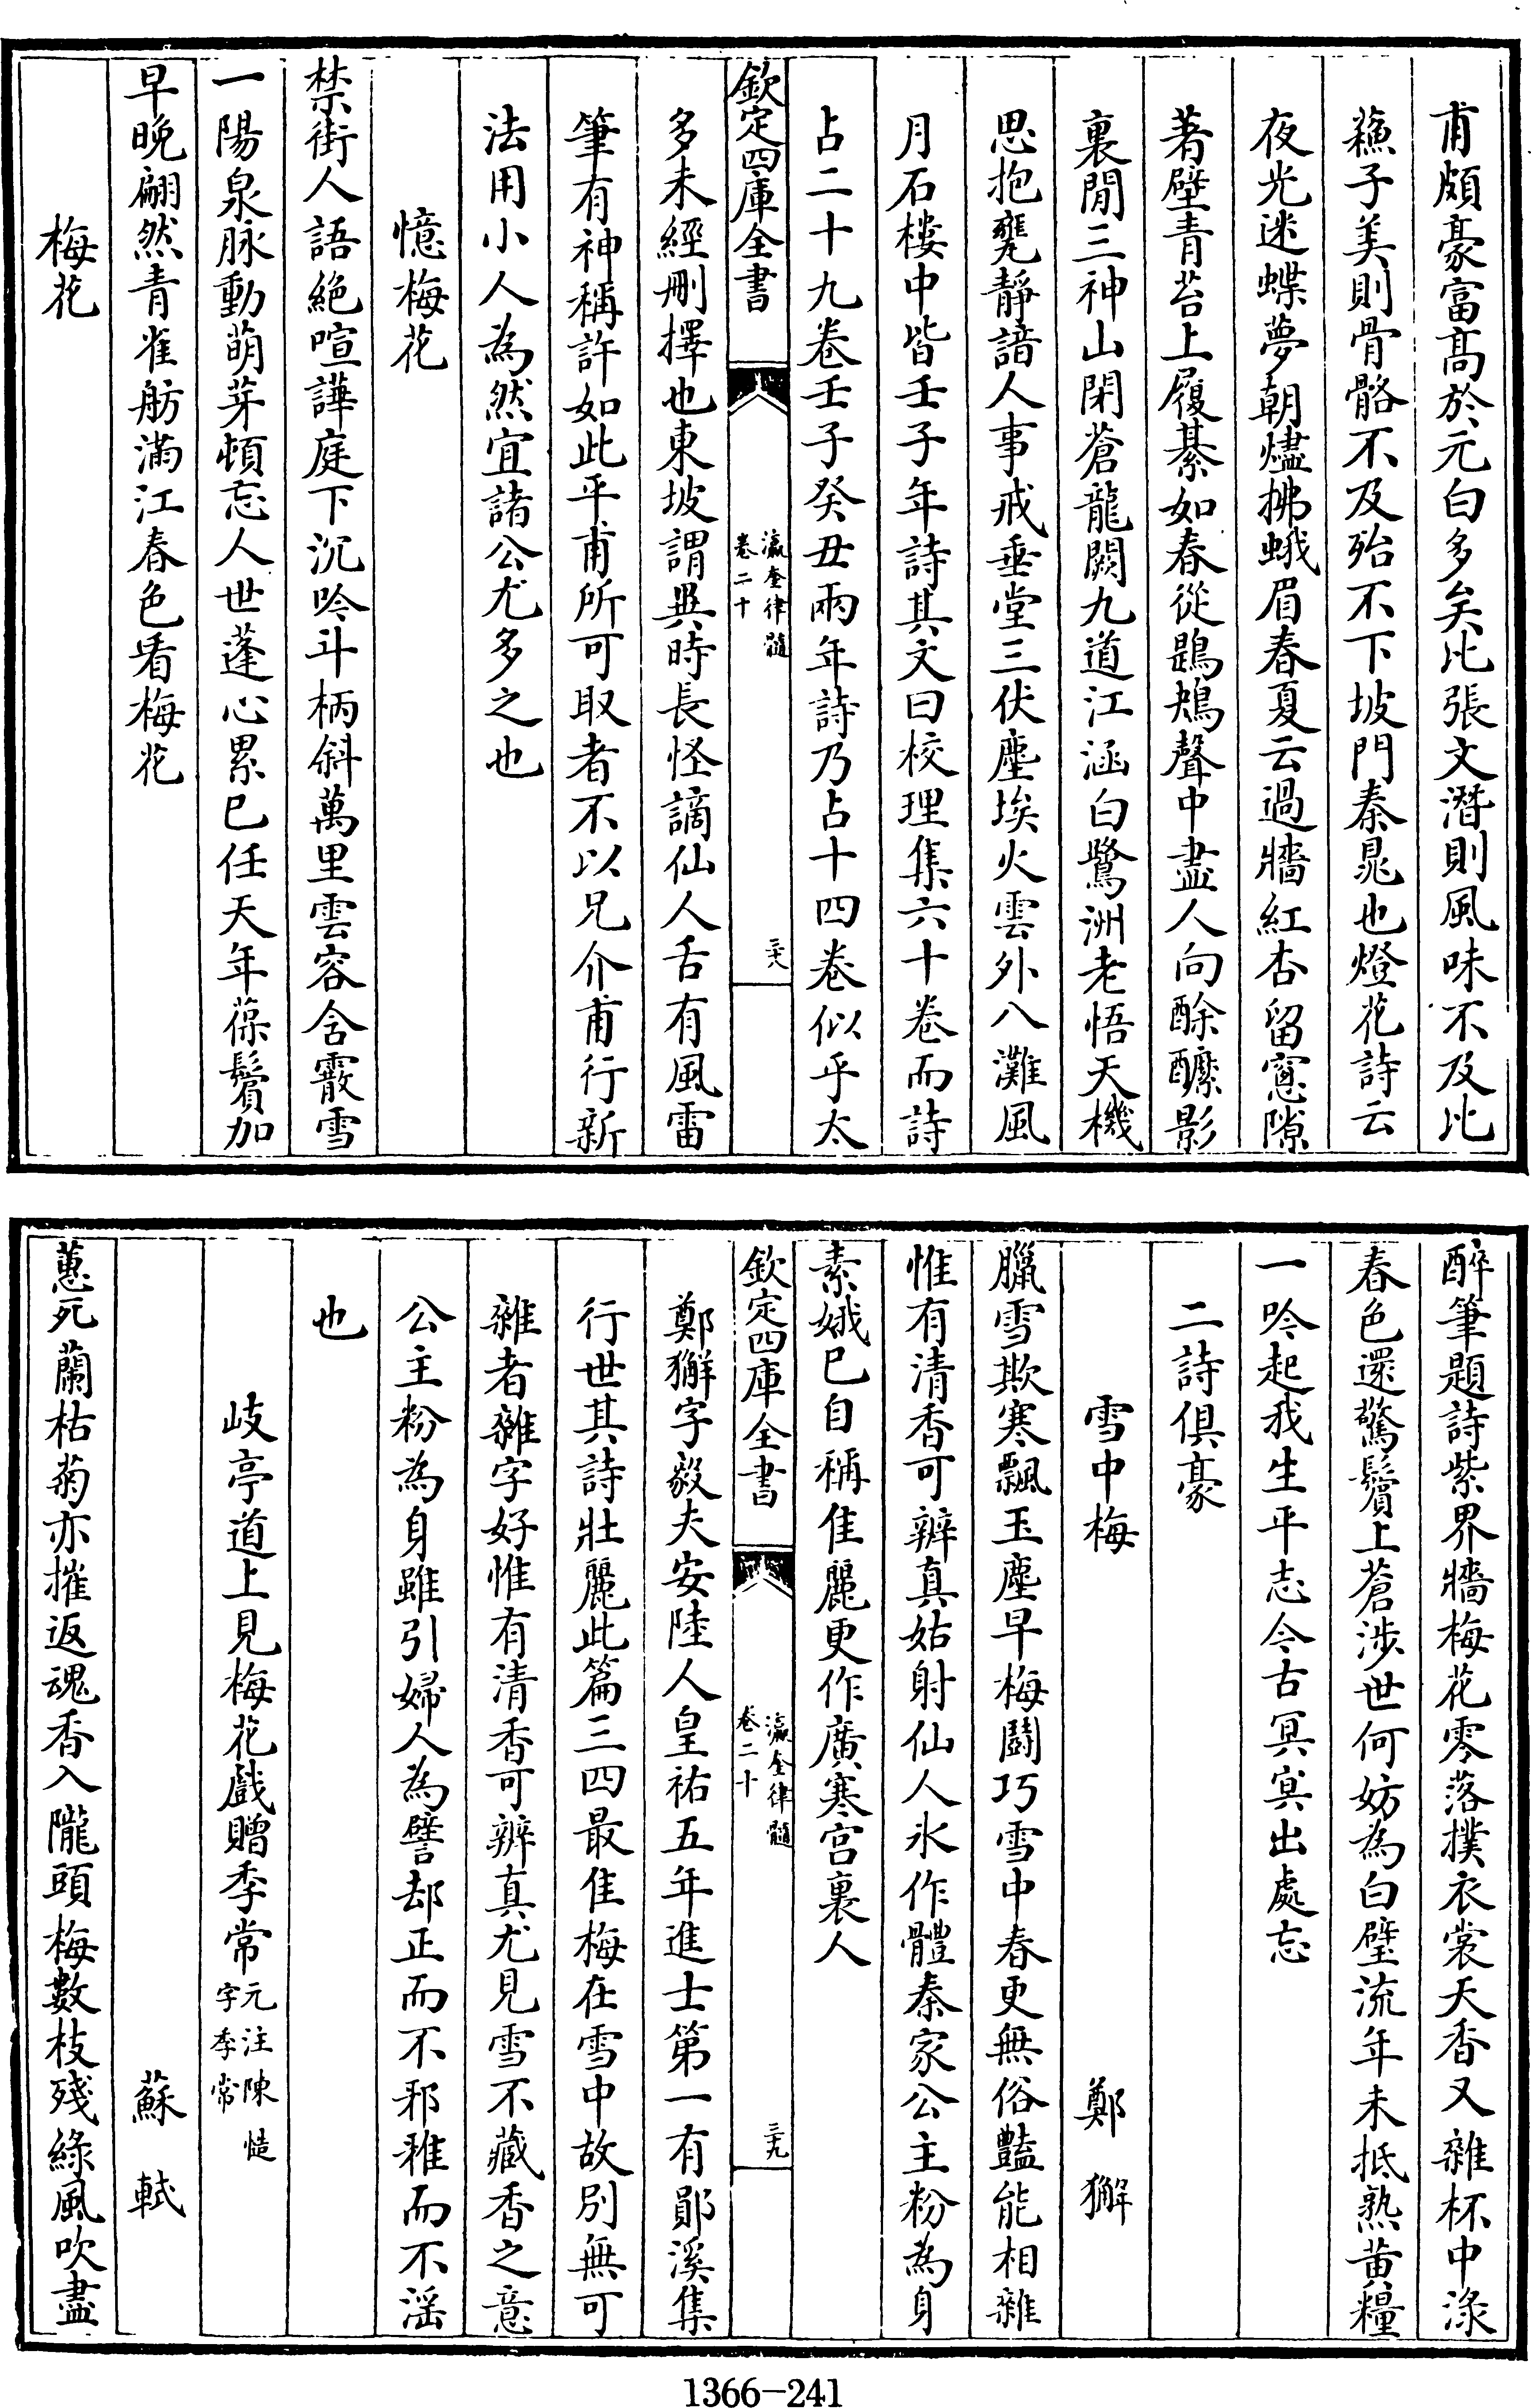 甫頗豪富髙於元白多矣比張文潜則風味不及比
蘓子美則骨骼不及殆不下坡門秦晁也燈花詩云
夜光迷蝶夢朝燼拂蛾眉春夏云過牆紅杏留窻隙
著壁青苔上履綦如春從鶗鴂聲中盡人向酴醿影
裏閒三神山閉蒼龍闕九道江涵白鷺洲老悟天機
思抱甕靜諳人事戒垂堂三伏塵埃火雲外八灘風
月石樓中皆壬子年詩其文曰校理集六十卷而詩
占二十九卷壬子癸丑兩年詩乃占十四卷似乎太
欽定四庫全書
瀛奎律髓
卷二十
三十八
多未經刪擇也東坡謂異時長怪謫仙人舌有風雷
筆有神稱許如此平甫所可取者不以兄介甫行新
法用小人為然宜諸公尤多之也
憶梅花
禁街人語絶喧譁庭下沉吟斗柄斜萬里雲容含霰雪
一陽泉脉動萌芽頓忘人世蓬心累已任天年葆鬢加
早晚翩然青雀舫滿江春色看梅花
梅花
醉筆題詩紫界牆梅花零落撲衣裳天香又雜杯中渌
春色還驚鬢上蒼涉世何妨為白璧流年未抵熟黄糧
一吟起我生平志今古冥冥出處忘
二詩俱豪
雪中梅
鄭獬
臘雪欺寒飄玉塵早梅鬭巧雪中春更無俗豔能相雜
惟有清香可辨真姑射仙人氷作體秦家公主粉為身
素娥已自稱佳麗更作廣寒宫裏人
欽定四庫全書
瀛奎律髓
卷二十
三十九
鄭獬字毅夫安陸人皇祐五年進士第一有鄖溪集
行世其詩壯麗此篇三四最佳梅在雪中故別無可
雜者雜字好惟有清香可辨真尤見雪不藏香之意
公主粉為身雖引婦人為譬却正而不邪雅而不滛
也
岐亭道上見梅花戲贈季常元注陳慥字季常
蘇軾
蕙死蘭枯菊亦摧返魂香入隴頭梅數枝殘綠風吹盡
1366-241